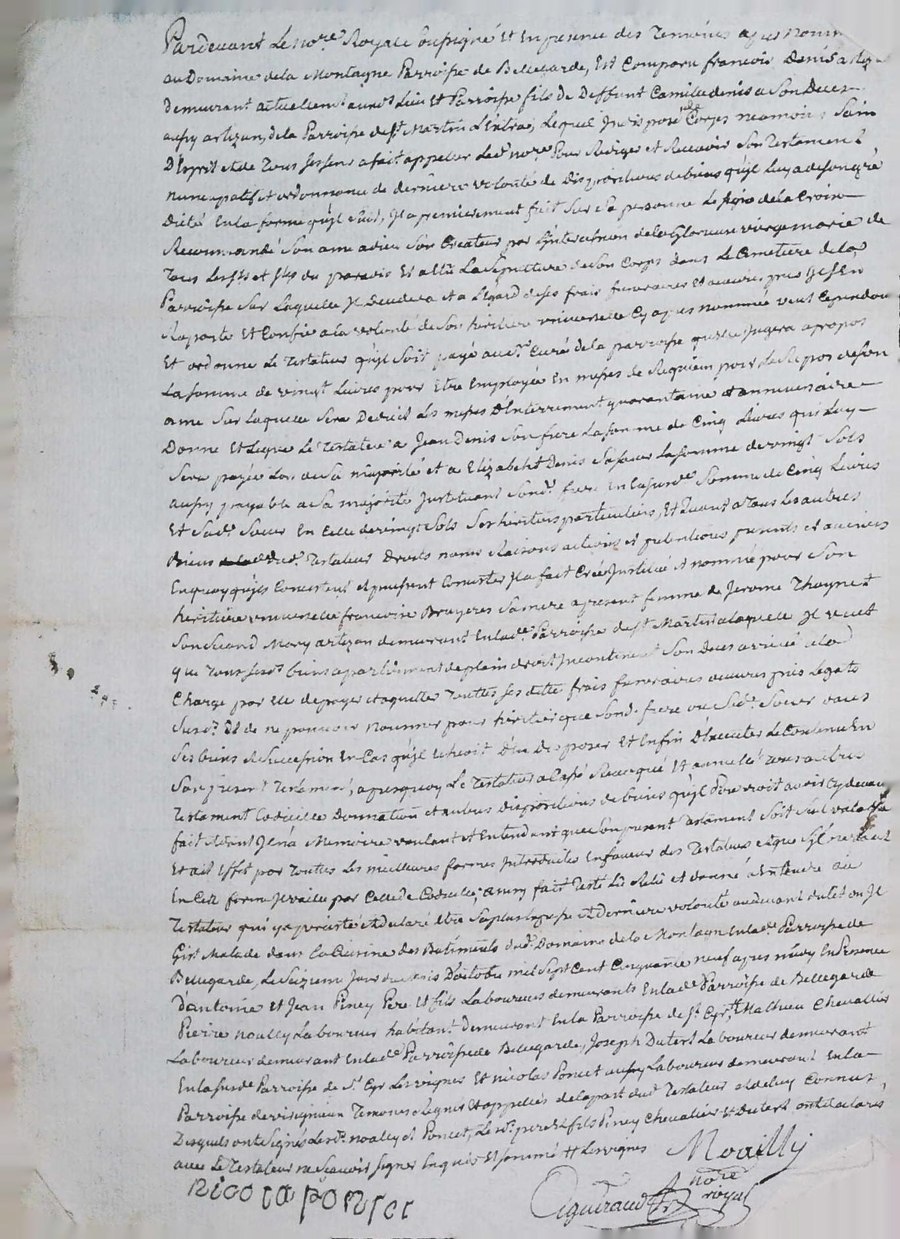 Pardevant Le no.re Royale Soussigné Et En presence des Temoins apres nomm
au Domaine de la Montagne Parroisse de Bellegarde, Est Comparu francois Denis
demeurant actuellem.t Lieu Et Parroisse fils de Deffunt Camille denis a Son Deces
aussy artizan, de la Parroisse de S.t Martin L'Estra, Lequel Indisposé de Corps neamoins Sain
D'Esprit et de Tous Ses Sens a fait appeler Led.t no.re Pour Rediger et Recevoir Son Testament
nuncupatif et ordonnance de derniere volonté de dispositions de biens qu'il Luy a de Son gré
Dicté En la forme qu'il Suit, Il a premierement fait Sur Sa personne Le Signe de la Croix
Recommandé Son ame a dieu Son Createur par L'intercession de la Glorieuse vierge marie de
Tous Les Sts et Stes du paradis Et a Elu La Sepulture de Son Corps dans Le Cimetiere de la
Parroisse Sur Laquelle Il Decedera et a L'égard de Ses frais funeraires Et œuvres pies Il S'En
Raporte Et Confie a la volonté de Son heritiere universelle Cy apres nommée veut Cependant
Et ordonne Le Testateur qu'il Soit payé au S.r Curé de la parroisse qu'elle Jugera apropos
La Somme de vingt Livres pour Etre Employée En messes de Requiem pour Le Repos de Son
ame Sur Laquelle Sera Deduit Les messes D'Enterrement quarantaine et anniversaire
Donne Et Legue Le Testateur a Jean Denis Son frere La Somme de Cinq Livres qui Luy
Sera payée Lors de Sa majorité et a Elizabeth Denis Sa Sœur La Somme de vingt Sols
aussy payable a Sa majorité Instituant Sond.t frere En la Susd.e Somme de Cinq Livres
Et Sad.e Sœur En Celle de vingt Sols Ses heritiers particuliers, Et Quant a Tous Les autres
Biens dud.t Testateur Droits noms Raisons actions et pretentions presents et avenirs
En quoy qu'ils Consistent et puissent Consister Il a fait Créé Institué et nommé pour Son
heritiere universelle francoise Bruyeres Sa mere apresent femme de Jerome Thoynet
Son Second Mary artizan demeurant En lad.e Parroisse de S.t Martin a laquelle Il veut
que Tous Sesd.ts biens apartiennent de plain droit Incontinent Son Deces arrivé a la
Charge par Elle de payer et aquitter Touttes Ses dette frais funeraires œuvres pies Legats
Susd.ts Et de ne pouvoir nommer pour héritier que Sond.t frere ou Sad.e Sœur
Ses biens et Succession En Cas qu'il Echeoit D'En Disposer Et Enfin D'Executer Le Contenu En
Son present Testament, apres quoy Le Testateur a Cassé Revoqué Et annullé Tous autres
Testament Codicille Donnation et autres Dispositions de biens qu'il Pourroit avoir Cy devant
fait dont Il n'a Memoire voulant et Entendant que Son present Testament Soit Seul valable
Et ait Effet par Touttes Les meilleures formes Introduites En faveur des Testateurs Et que S'il ne vaut
En Cette forme Il vaille par Celle de Codicille, ainsy fait Testé Lû Relû et donné a Entendre au
Testateur qui y a persisté et declaré Etre Sa plus Expresse Et derniere volonté audevant du lit ou Il
Git Malade dans la Cuisine des Batiments dud.t Domaine de la Montagne En lad.e Parroisse de
Bellegarde, Le Seizieme Jour du mois D'octobre mil Sept Cent Cinquante neuf apres midy En Presence
D'antoine Et Jean Piney Pere Et fils Laboureurs demeurants En lad.e Parroisse de Bellegarde
Pierre noailly Laboureur habitant demeurant En la Parroisse de S.t Cyr Mathieu Chevallier
Laboureur demeurant En lad.e Parroisse de Bellegarde, Joseph Dutert Laboureur demeurant
En la Susd.e Parroisse de S.t Cyr Les vignes Et nicolas Poncet aussy Laboureur demeurant En la
Parroisse de virigneux Temoins Requis Et appellés de la part dud.t Testateur a deluy Connus,
Desquels ont Signés Lesd.ts noailly et Poncet, Lesd.ts pere Et fils Piney Chevallier Et Dutert ont declarés
avec Le Testateur ne Scavoir Signer Enquis Et Sommé Et Les vignes
Noailly
nicola ponset
Aguiraud
no.re
royal